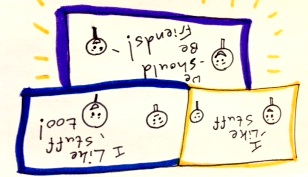 I Like
Stuff
I Like
Stuff
too!
We
should
Be
Friends!